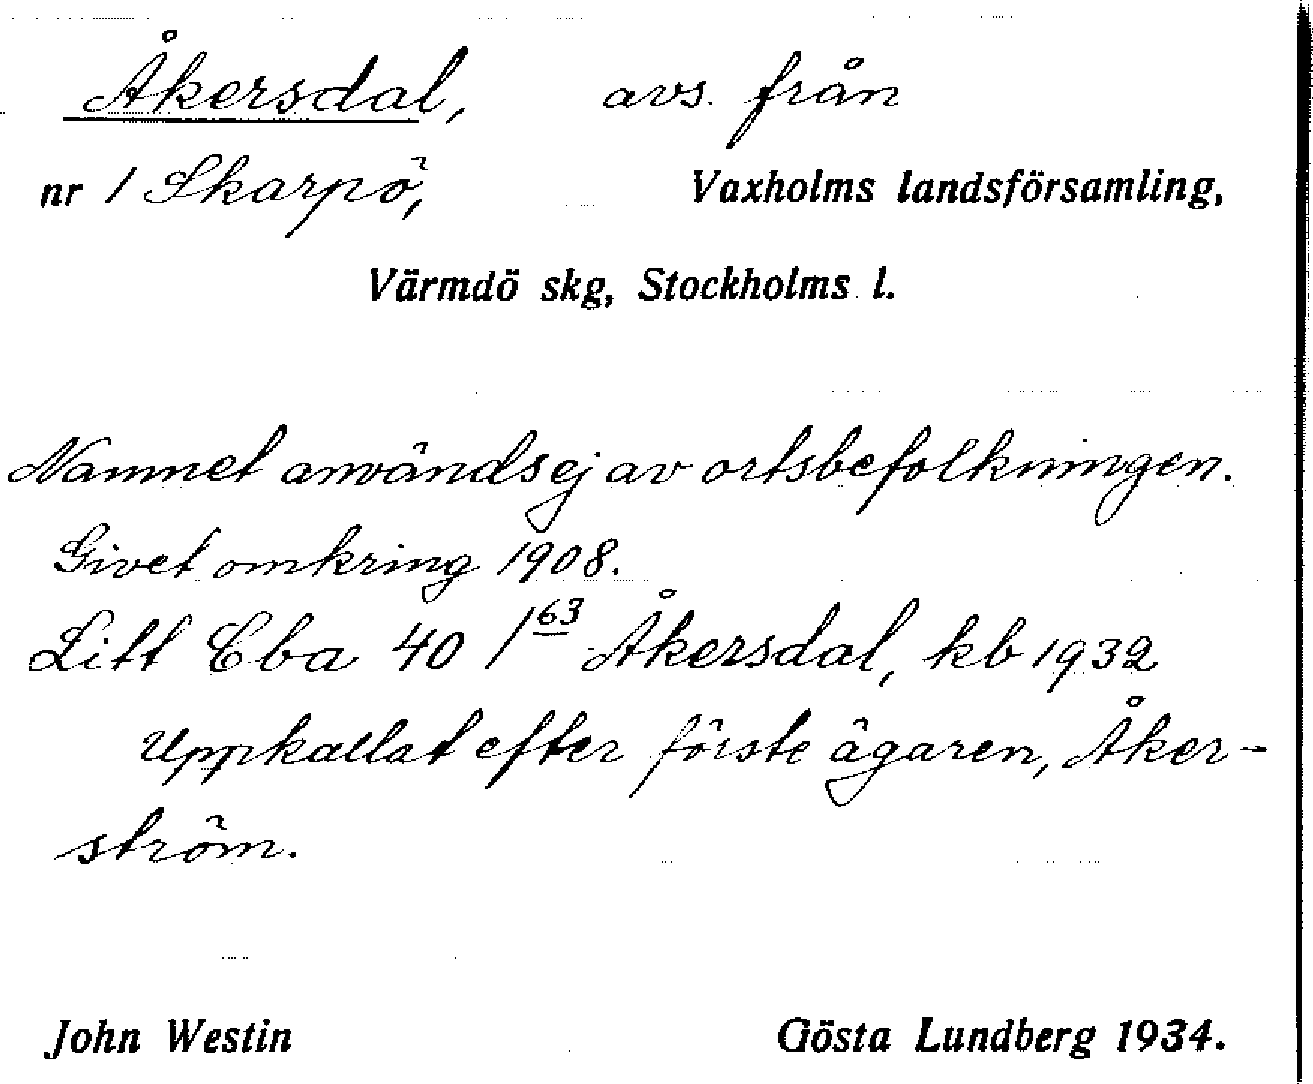 Åkersdal, avs. från
nr 1 Skarpö, Vaxholms landsförsamling,
Värmdö skg, Stockholms l.
Namnet används ej av ortsbefolkningen.
Givet omkring 1908.
Litt Cba 40 1⁶³ Åkersdal, kb 1932
Uppkallat efter förste ägaren, Åker-
ström.
John Westin Gösta Lundberg 1934.